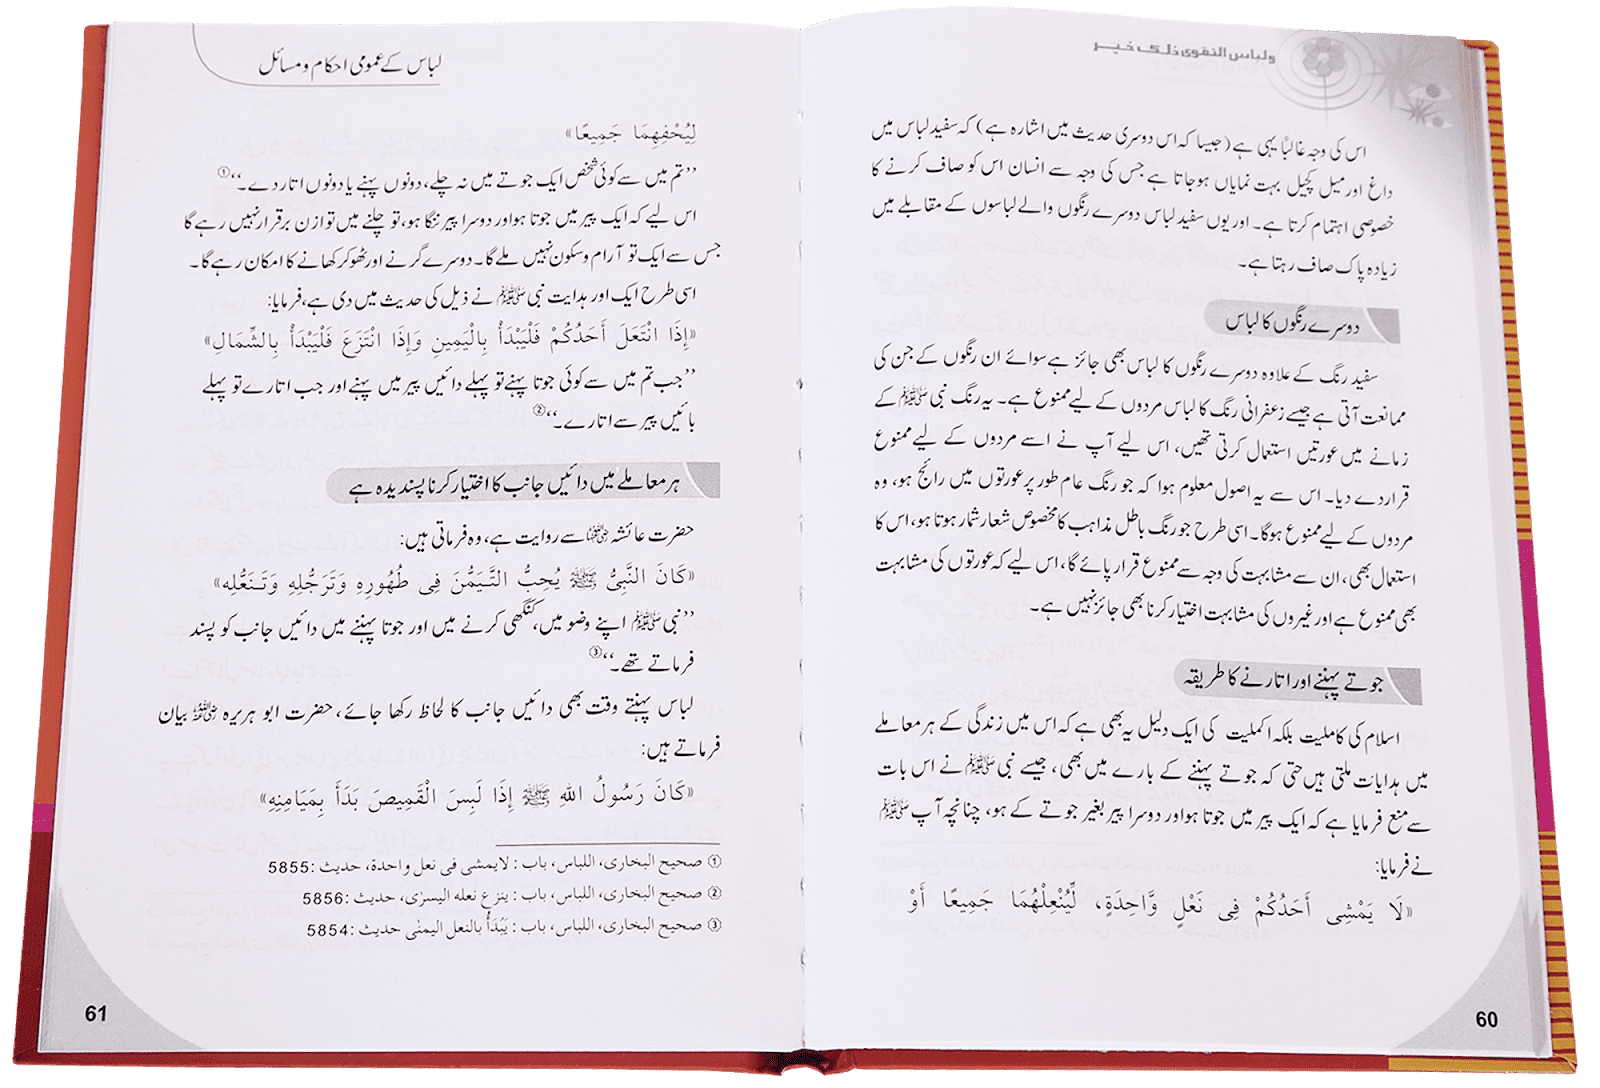 ولباس التقوى ذلك خير
اس کی وجہ غالبًا یہی ہے (جیسا کہ اس دوسری حدیث میں اشارہ ہے) کہ سفید لباس میں
داغ اور میل کچیل بہت نمایاں ہوجاتا ہے جس کی وجہ سے انسان اس کو صاف کرنے کا
خصوصی اہتمام کرتا ہے۔ اور یوں سفید لباس دوسرے رنگوں والے لباسوں کے مقابلے میں
زیادہ پاک صاف رہتا ہے۔
دوسرے رنگوں کا لباس
سفید رنگ کے علاوہ دوسرے رنگوں کا لباس بھی جائز ہے سوائے ان رنگوں کے جن کی
ممانعت آتی ہے جیسے زعفرانی رنگ کا لباس مردوں کے لیے ممنوع ہے۔ یہ رنگ نبی ﷺ کے
زمانے میں عورتیں استعمال کرتی تھیں، اس لیے آپ نے اسے مردوں کے لیے ممنوع
قرار دے دیا۔ اس سے یہ اصول معلوم ہوا کہ جو رنگ عام طور پر عورتوں میں رائج ہو، وہ
مردوں کے لیے ممنوع ہوگا۔ اسی طرح جو رنگ باطل مذاہب کا مخصوص شعار شمار ہوتا ہو، اس کا
استعمال بھی، ان سے مشابہت کی وجہ سے ممنوع قرار پائے گا، اس لیے کہ عورتوں کی مشابہت
بھی ممنوع ہے اور غیروں کی مشابہت اختیار کرنا بھی جائز نہیں ہے۔
جوتے پہننے اور اتارنے کا طریقہ
اسلام کی کاملیت بلکہ اکملیت کی ایک دلیل یہ بھی ہے کہ اس میں زندگی کے ہر معاملے
میں ہدایات ملتی ہیں حتی کہ جوتے پہننے کے بارے میں بھی، جیسے نبی ﷺ نے اس بات
سے منع فرمایا ہے کہ ایک پیر میں جوتا ہو اور دوسرا پیر بغیر جوتے کے ہو، چنانچہ آپ ﷺ
نے فرمایا:
«لَا يَمْشِى أَحَدُكُمْ فِى نَعْلٍ وَّاحِدَةٍ، لِّيُنْعِلْهُمَا جَمِيعًا أَوْ
60
لباس کے عمومی احکام و مسائل
لِيُحْفِهِمَا جَمِيعًا»
’’تم میں سے کوئی شخص ایک جوتے میں نہ چلے، دونوں پہنے یا دونوں اتار دے۔‘‘①
اس لیے کہ ایک پیر میں جوتا ہو اور دوسرا پیر ننگا ہو، تو چلنے میں توازن برقرار نہیں رہے گا
جس سے ایک تو آرام و سکون نہیں ملے گا۔ دوسرے گرنے اور ٹھوکر کھانے کا امکان رہے گا۔
اسی طرح ایک اور ہدایت نبی ﷺ نے ذیل کی حدیث میں دی ہے، فرمایا:
«إِذَا انْتَعَلَ أَحَدُكُمْ فَلْيَبْدَأْ بِالْيَمِينِ وَإِذَا انْتَزَعَ فَلْيَبْدَأْ بِالشِّمَالِ»
’’جب تم میں سے کوئی جوتا پہنے تو پہلے دائیں پیر میں پہنے اور جب اتارے تو پہلے
بائیں پیر سے اتارے۔‘‘②
ہر معاملے میں دائیں جانب کا اختیار کرنا پسندیدہ ہے
حضرت عائشہ ؓ سے روایت ہے، وہ فرماتی ہیں:
«كَانَ النَّبِىُّ ﷺ يُحِبُّ التَّيَمُّنَ فِى طُهُورِهِ وَتَرَجُّلِهِ وَتَنَعُّلِه»
’’نبی ﷺ اپنے وضو میں، کنگھی کرنے میں اور جوتا پہننے میں دائیں جانب کو پسند
فرماتے تھے۔‘‘③
لباس پہنتے وقت بھی دائیں جانب کا لحاظ رکھا جائے، حضرت ابو ہریرہ ؓ بیان
فرماتے ہیں:
«كَانَ رَسُولُ اللهِ ﷺ إِذَا لَبِسَ الْقَمِيصَ بَدَأَ بِمَيَامِنِهِ»
① صحيح البخارى، اللباس، باب : لايمشى فى نعل واحدة، حديث :5855
② صحيح البخارى، اللباس، باب : ينزع نعله اليسرٰى، حديث :5856
③ صحيح البخارى، اللباس، باب : يَبْدَأُ بالنعل اليمنٰى حديث :5854
61